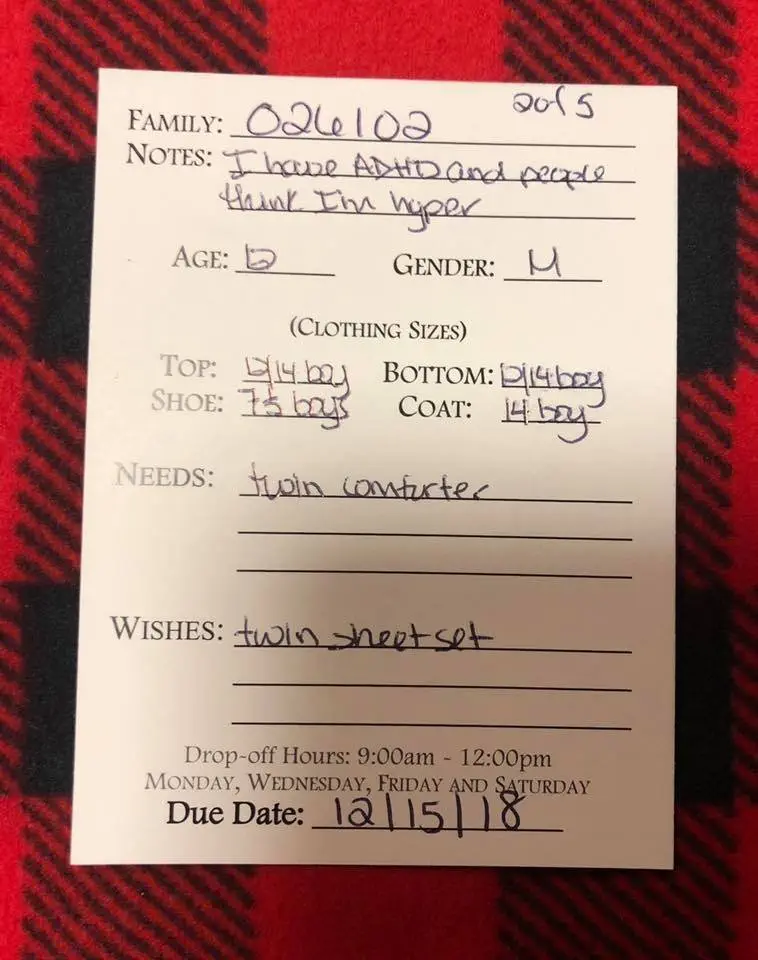 2 of 5
FAMILY: 026102
NOTES: I have ADHD and people
think I'm hyper
AGE: 12 GENDER: M
(CLOTHING SIZES)
TOP: 12/14 boy BOTTOM: 12/14 boy
SHOE: 7.5 boys COAT: 14 boy
NEEDS: twin comfurter
WISHES: twin sheet set
Drop-off Hours: 9:00am - 12:00pm
MONDAY, WEDNESDAY, FRIDAY AND SATURDAY
Due Date: 12/15/18